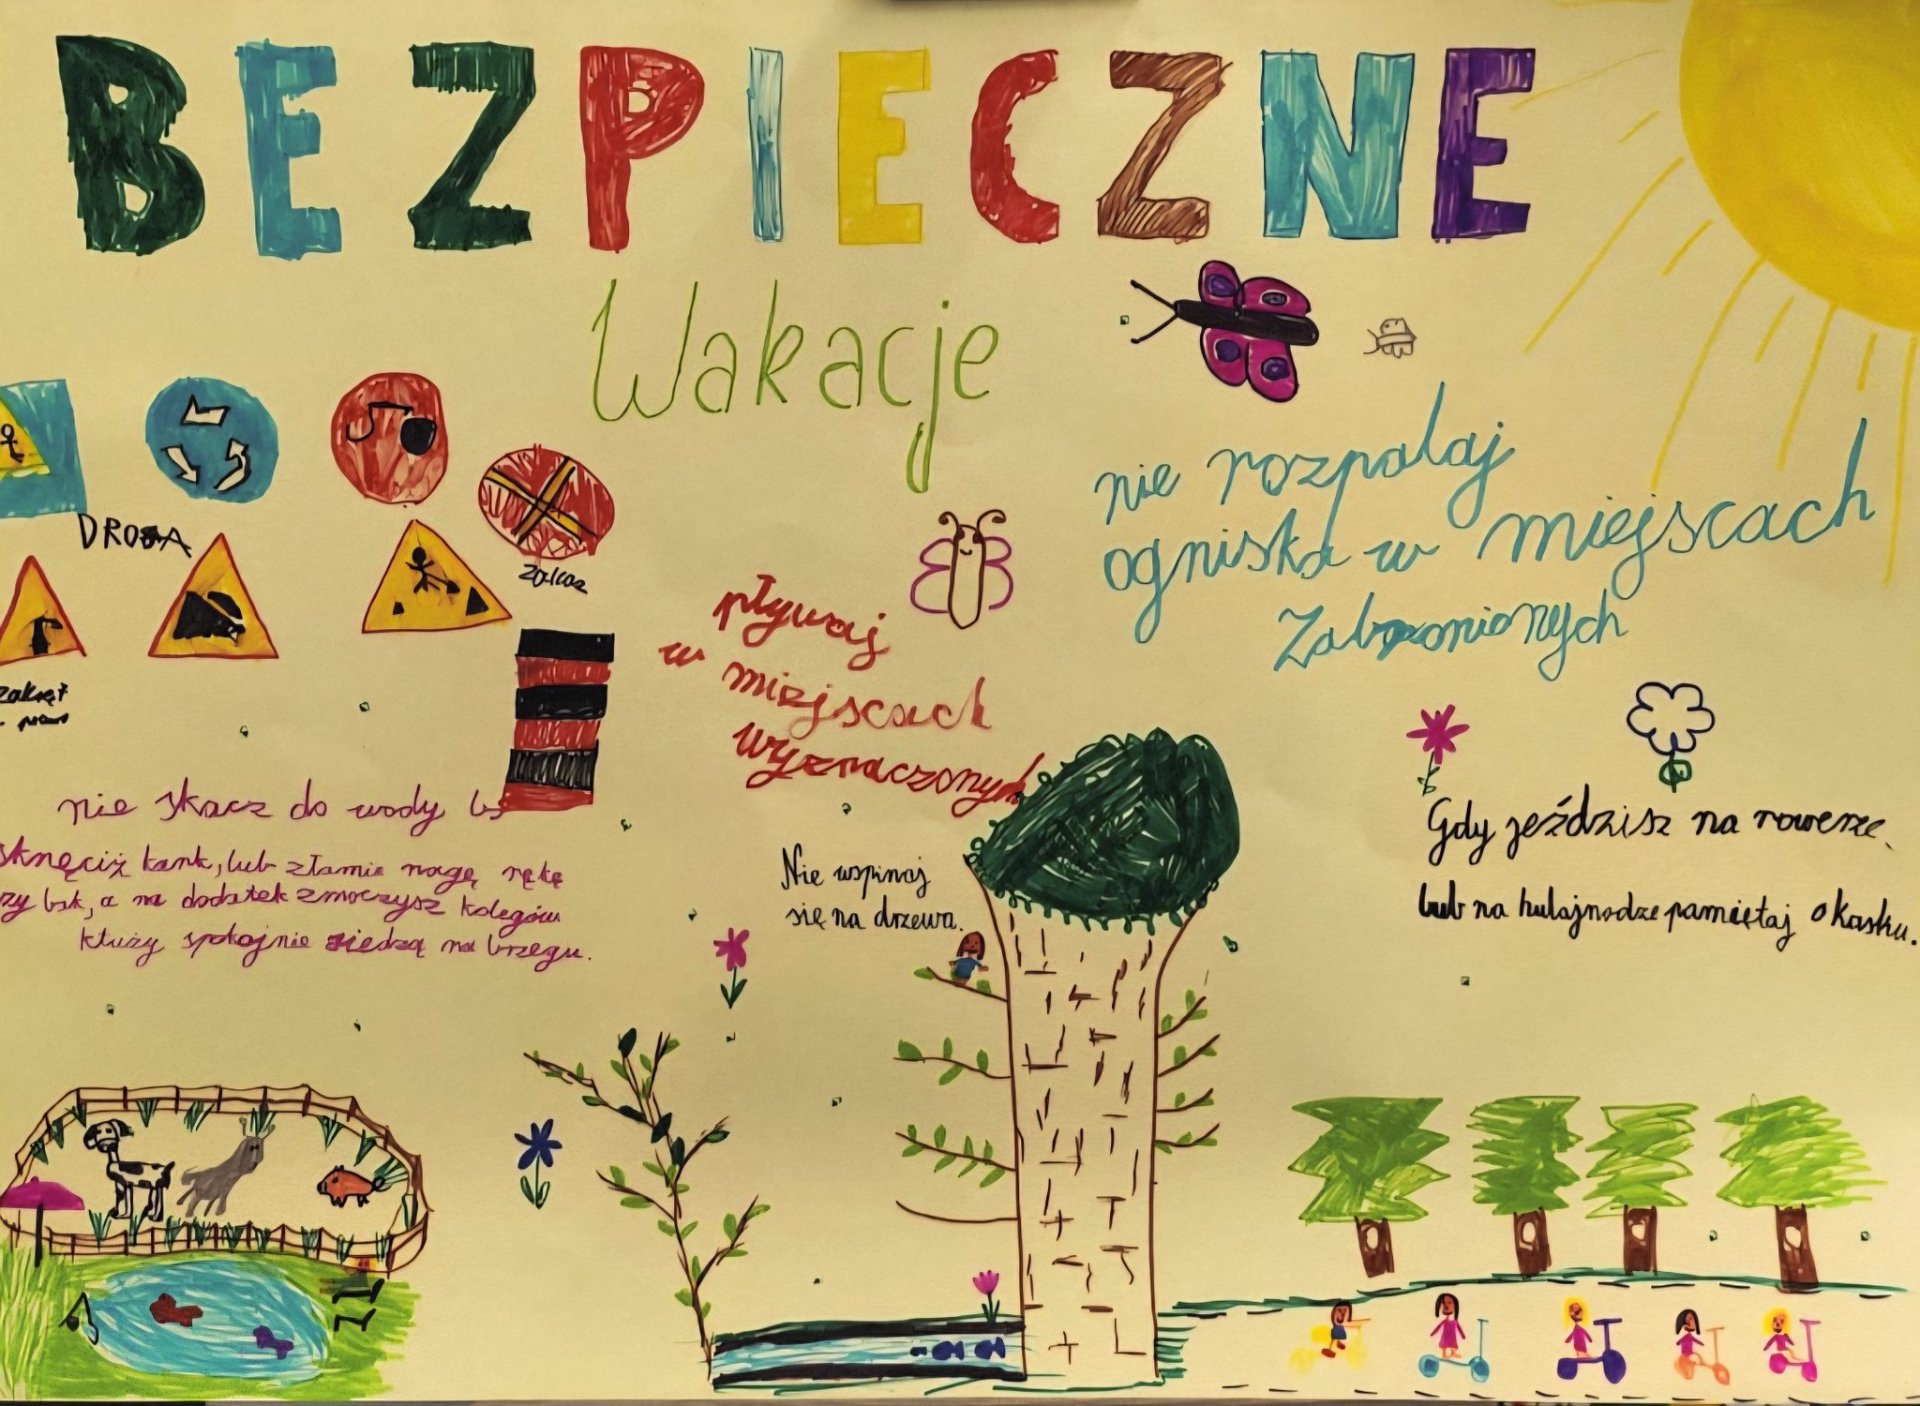 BEZPIECZNE
Wakacje
nie rozpalaj
ogniska w miejscach
Zabronionych
DROGA
zakaz
zakręt
pływaj
w miejscach
wyznaczonych
nie skacz do wody bo
kark, lub złamie nogę rękę
a na dodatek zmoczysz kolegów
któży spokojnie siedzą na brzegu.
Nie wspinaj
się na drzewa.
Gdy jeździsz na rowerze
lub na hulajnodze pamiętaj o kasku.